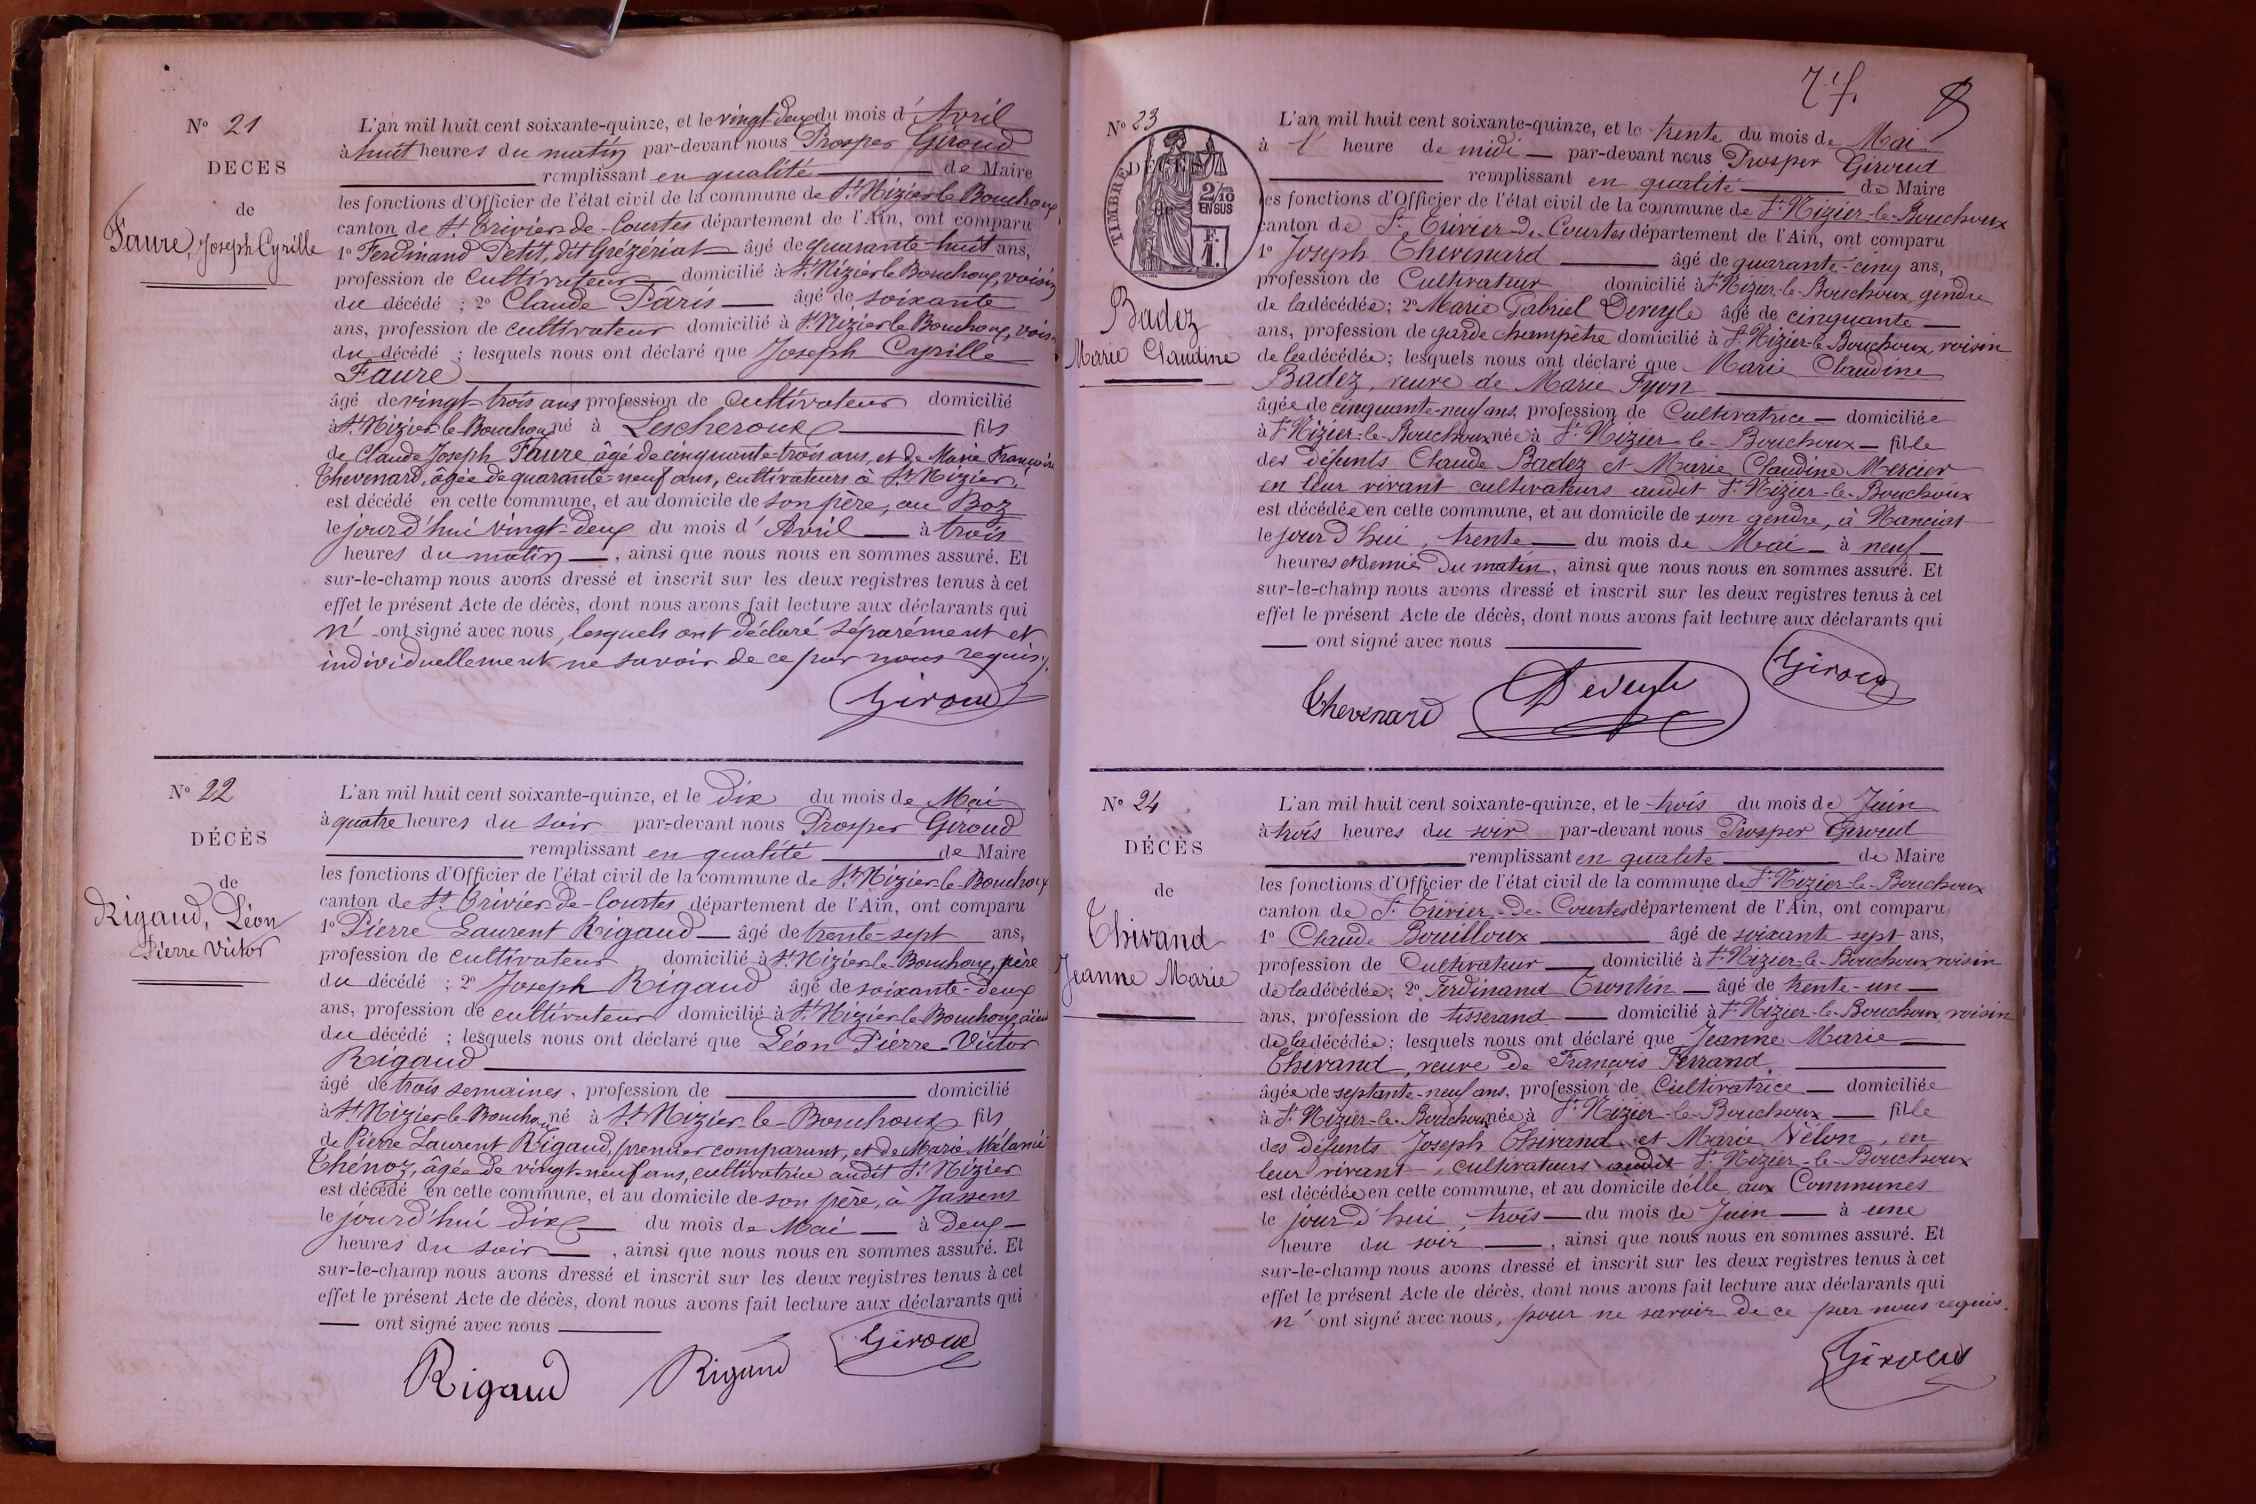 Nº 21
DECES
de
Faure, Joseph Cyrille
L'an mil huit cent soixante-quinze, et le vingt-deux du mois d'Avril
à huit heures du matin par-devant nous Prosper Giroud
remplissant en qualité de Maire
les fonctions d'Officier de l'état civil de la commune de St Nizier le Bouchoux,
canton de St Trivier-de-Courtes département de l'Ain, ont comparu
1º Ferdinand Petit, dit Grézériat âgé de quarante-huit ans,
profession de Cultivateur domicilié à St Nizier le Bouchoux, voisin
du décédé ; 2º Claude Pâris âgé de soixante
ans, profession de cultivateur domicilié à St Nizier le Bouchoux, voisin
du décédé ; lesquels nous ont déclaré que Joseph Cyrille
Faure
âgé de vingt-trois ans profession de Cultivateur domicilié
à St Nizier le Bouchoux né à Lescheroux fils
de Claude Joseph Faure âgé de cinquante-trois ans, et de Marie Françoise
Thevenard, âgée de quarante-neuf ans, cultivateurs à St Nizier,
est décédé en cette commune, et au domicile de son père, au Boz
le jourd'hui vingt-deux du mois d'Avril à trois
heures du matin , ainsi que nous nous en sommes assuré. Et
sur-le-champ nous avons dressé et inscrit sur les deux registres tenus à cet
effet le présent Acte de décès, dont nous avons fait lecture aux déclarants qui
n'ont signé avec nous, lesquels ont déclaré séparément et
individuellement ne savoir de ce par nous requis.
Giroud
Nº 22
DÉCÈS
de
Rigaud, Léon
Pierre Victor
L'an mil huit cent soixante-quinze, et le Dix du mois de Mai
à quatre heures du soir par-devant nous Prosper Giroud
remplissant en qualité de Maire
les fonctions d'Officier de l'état civil de la commune de St Nizier-le-Bouchoux
canton de St Trivier-de-Courtes département de l'Ain, ont comparu
1º Pierre Laurent Rigaud âgé de trente-sept ans,
profession de cultivateur domicilié à St Nizier-le-Bouchoux, père
du décédé ; 2º Joseph Rigaud âgé de soixante-deux
ans, profession de cultivateur domicilié à St Nizier le Bouchoux, aïeul
du décédé ; lesquels nous ont déclaré que Léon Pierre-Victor
Rigaud
âgé de trois semaines, profession de domicilié
à St Nizier le Bouchoux né à St Nizier le-Bouchoux fils
de Pierre Laurent Rigaud, premier comparant, et de Marie Mélanie
Thénoz, âgée de vingt-neuf ans, cultivatrice audit St Nizier
est décédé en cette commune, et au domicile de son père, à Jassens
le jourd'hui dix du mois de Mai à deux
heures du soir , ainsi que nous nous en sommes assuré. Et
sur-le-champ nous avons dressé et inscrit sur les deux registres tenus à cet
effet le présent Acte de décès, dont nous avons fait lecture aux déclarants qui
ont signé avec nous
Rigaud Rigaud Giroud
8
Nº 23
DÉCÈS
de
TIMBRE
2/10
EN SUS
F.
1.
Badez
Marie Claudine
L'an mil huit cent soixante-quinze, et le trente du mois de Mai
à l' heure de midi par-devant nous Prosper Giroud
remplissant en qualité de Maire
les fonctions d'Officier de l'état civil de la commune de St Nizier-le-Bouchoux
canton de St Trivier-de-Courtes département de l'Ain, ont comparu
1º Joseph Thevenard âgé de quarante-cinq ans,
profession de Cultivateur domicilié à St Nizier-le-Bouchoux, gendre
de la décédée ; 2º Marie Gabriel Deveyle âgé de cinquante
ans, profession de garde champêtre domicilié à St Nizier-le-Bouchoux, voisin
de la décédée ; lesquels nous ont déclaré que Marie Claudine
Badez, veuve de Marie Fyon
âgée de cinquante-neuf ans, profession de Cultivatrice domiciliée
à St Nizier-le-Bouchoux née à St Nizier-le-Bouchoux fille
des défunts Claude Badez et Marie Claudine Mercier
en leur vivant cultivateurs audit St Nizier-le-Bouchoux
est décédée en cette commune, et au domicile de son gendre, à Manciat
le jourd'hui, trente du mois de Mai à neuf
heures et demie du matin, ainsi que nous nous en sommes assuré. Et
sur-le-champ nous avons dressé et inscrit sur les deux registres tenus à cet
effet le présent Acte de décès, dont nous avons fait lecture aux déclarants qui
ont signé avec nous
Thevenard Deveyle Giroud
Nº 24
DÉCÈS
de
Thivand
Jeanne Marie
L'an mil huit cent soixante-quinze, et le trois du mois de Juin
à trois heures du soir par-devant nous Prosper Giroud
remplissant en qualité de Maire
les fonctions d'Officier de l'état civil de la commune de St Nizier-le-Bouchoux
canton de St Trivier-de-Courtes département de l'Ain, ont comparu
1º Claude Bouilloux âgé de soixante-sept ans,
profession de Cultivateur domicilié à St Nizier-le-Bouchoux, voisin
de la décédée ; 2º Ferdinand Trontin âgé de trente-un
ans, profession de tisserand domicilié à St Nizier-le-Bouchoux, voisin
de la décédée ; lesquels nous ont déclaré que Jeanne Marie
Thivand, veuve de François Ferrand,
âgée de septante-neuf ans, profession de Cultivatrice domiciliée
à St Nizier-le-Bouchoux née à St Nizier-le-Bouchoux fille
des défunts Joseph Thivand et Marie Vélon, en
leur vivant, cultivateurs audit St Nizier-le-Bouchoux
est décédée en cette commune, et au domicile d'elle aux Communes
le jourd'hui, trois du mois de Juin à une
heure du soir , ainsi que nous nous en sommes assuré. Et
sur-le-champ nous avons dressé et inscrit sur les deux registres tenus à cet
effet le présent Acte de décès, dont nous avons fait lecture aux déclarants qui
n'ont signé avec nous, pour ne savoir de ce par nous requis.
Giroud